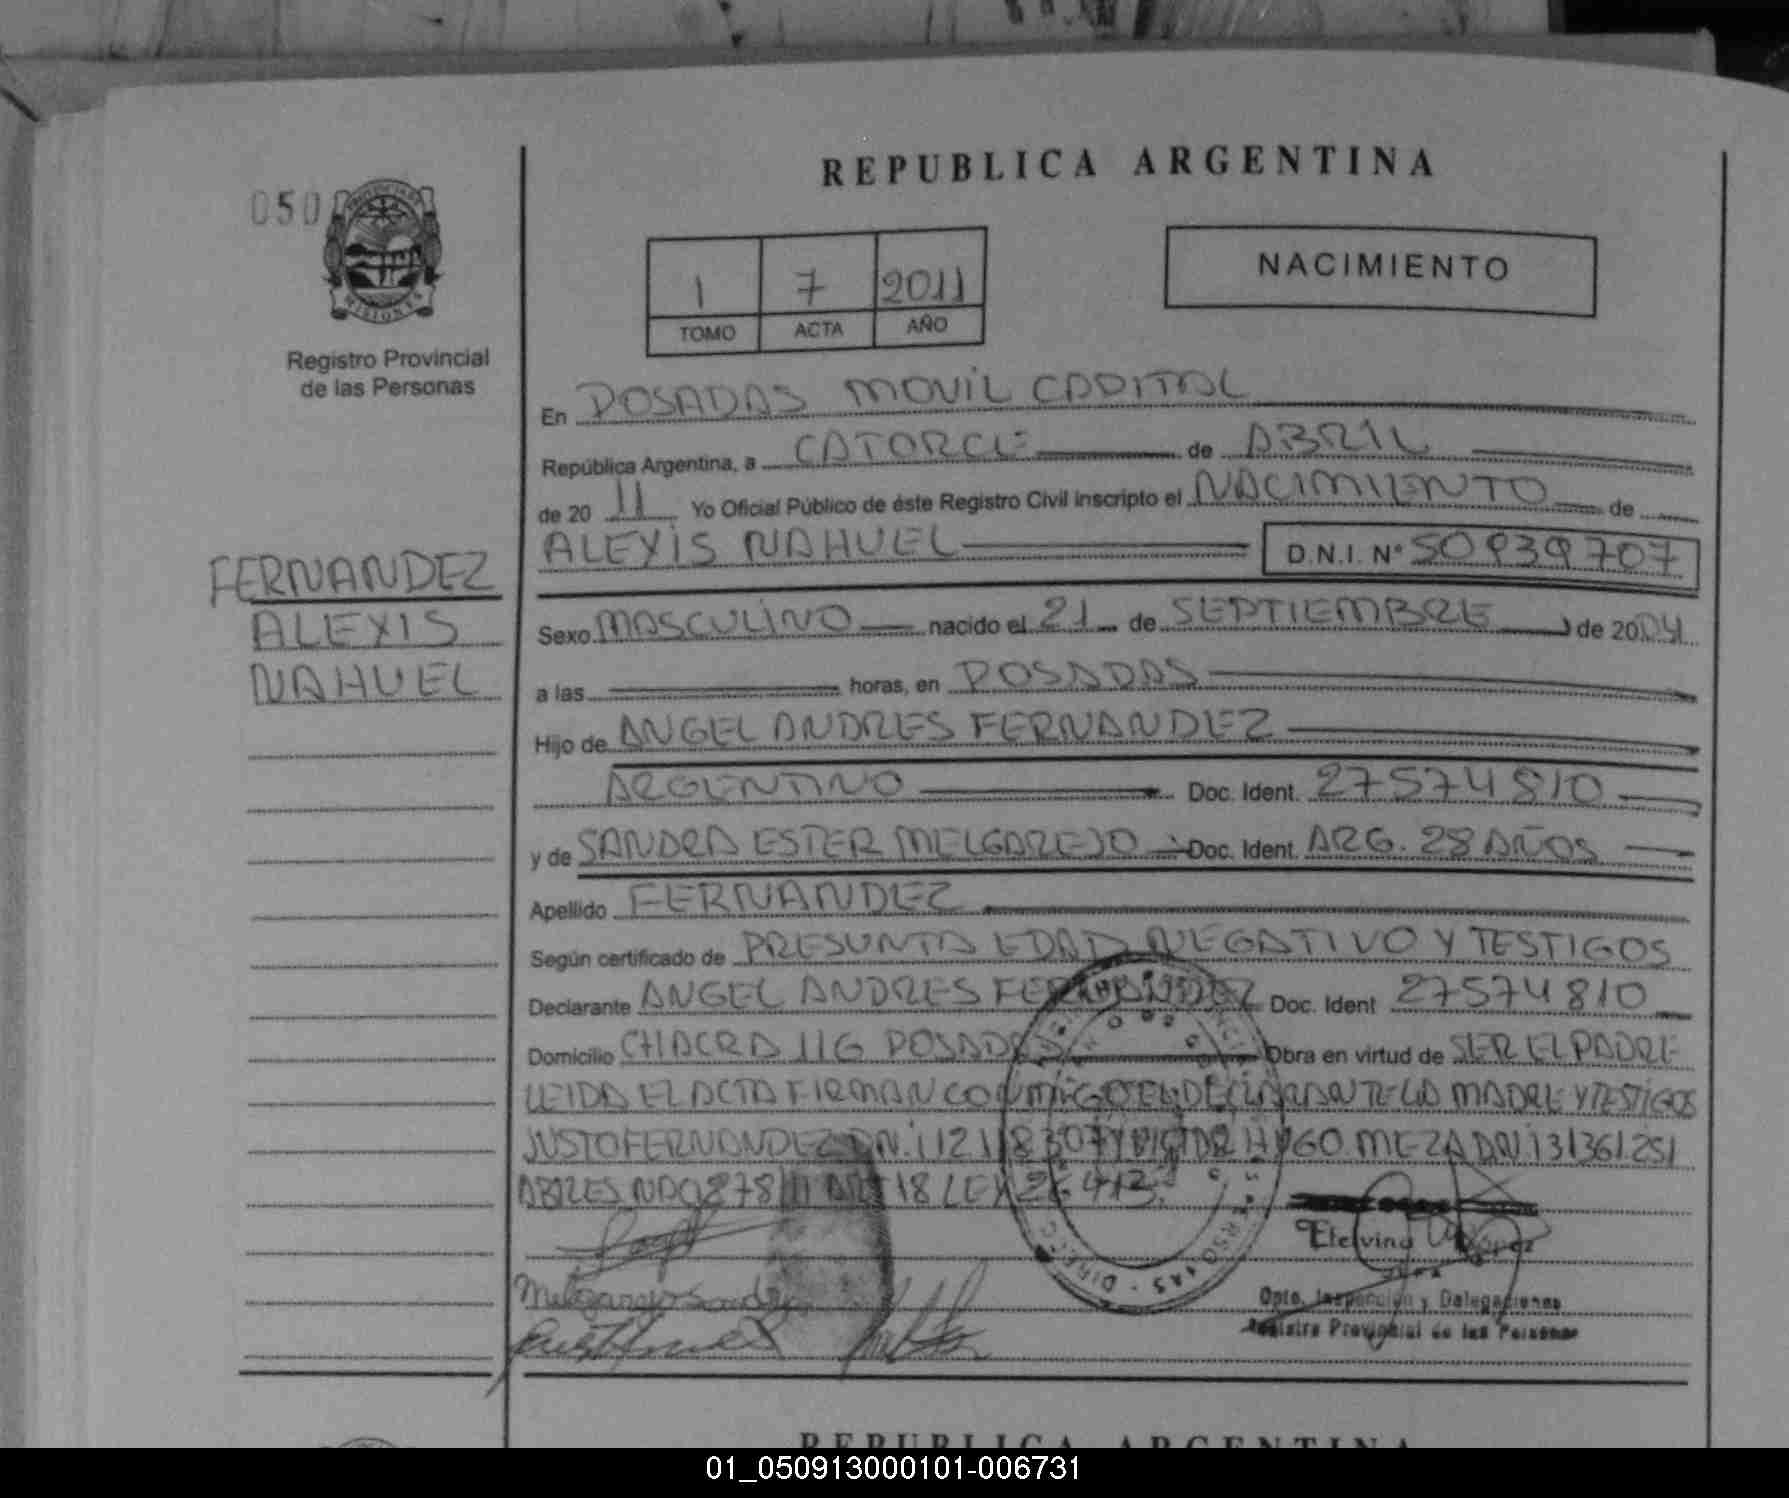 REPUBLICA ARGENTINA
050
PROVINCIA DE
MISIONES
Registro Provincial
de las Personas
1 7 2011
TOMO ACTA AÑO
NACIMIENTO
En POSADAS MOVIL CAPITAL
República Argentina, a CATORCE de ABRIL
de 20 11 Yo Oficial Público de éste Registro Civil inscripto el NACIMIENTO de
ALEXIS NAHUEL D.N.I. Nº 50939707
FERNANDEZ
ALEXIS
NAHUEL
Sexo MASCULINO nacido el 21 de SEPTIEMBRE de 2004
a las horas, en POSADAS
Hijo de ANGEL ANDRES FERNANDEZ
ARGENTINO Doc. Ident. 27574810
y de SANDRA ESTER MELGAREJO Doc. Ident. ARG. 28 AÑOS
Apellido FERNANDEZ
Según certificado de PRESUNTA EDAD NEGATIVO Y TESTIGOS
Declarante ANGEL ANDRES FERNANDEZ Doc. Ident 27574810
Domicilio CHACRA 116 POSADAS Obra en virtud de SER EL PADRE
LEIDA EL ACTA FIRMAN CONMIGO EL DECLARANTE LA MADRE Y TESTIGOS
JUSTO FERNANDEZ DNI 12118307 Y VICTOR HUGO MEZA DNI 31361251
878/11 ART 18 LEY 26413.
Etelvina López
Melgarejo Sandra
Dpto. Inspección y Delegaciones
Registro Provincial de las Personas
REPUBLICA ARGENTINA
01_050913000101-006731